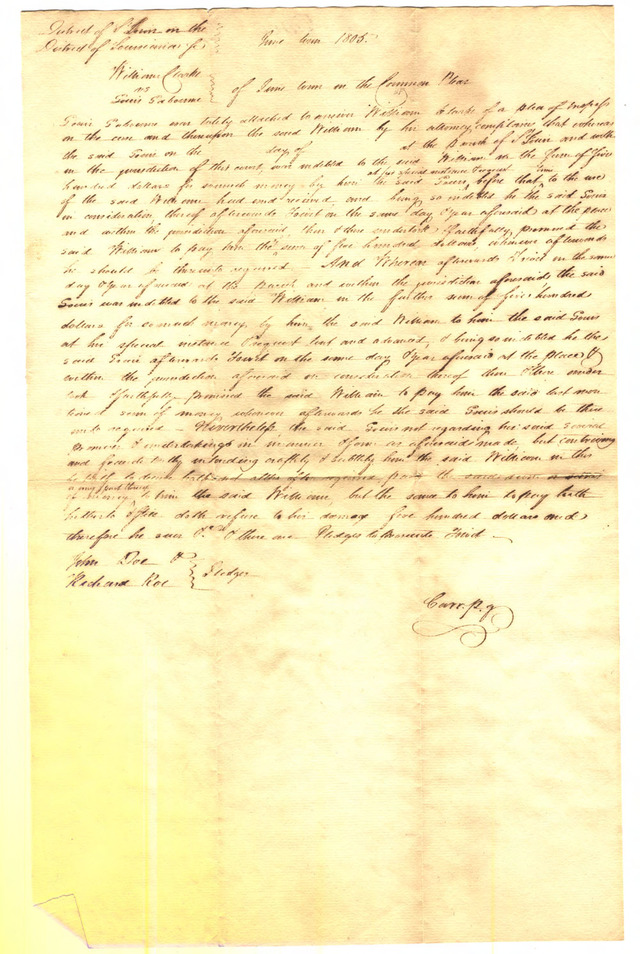 District of St Louis on the
District of Louisiana Js
June term 1805.
William Clark
vs
Louis Labeaume
of June term in the Common Pleas
Louis Labeaume was lately attached to answer William Clark of a plea of trespass
on the case and thereupon the said William by his attorney complains that whereas
the said Louis on the day of at the District of St Louis and with
in the jurisdiction of this court was indebted to the said William in the sum of five
at his special instance & request time
hundred dollars for so much money by him the said Louis before that to the use
of the said William had and received and being so indebted he the said Louis
in consideration thereof afterwards to wit on the same day & year aforesaid at the place
and within the jurisdiction aforesaid then & there undertook & faithfully promised the
said William to pay him the sum of five hundred dollars whenever afterwards
he should be thereunto required And Whereas afterwards to wit on the same
day & year aforesaid at the and within the jurisdiction aforesaid the said
Louis was indebted to the said William in the further sum of five hundred
dollars for so much money by him the said William to him the said Louis
at his special instance & request lent and advanced, & being so indebted he the
said Louis afterwards to wit on the same day & year aforesaid at the place &
within the jurisdiction aforesaid in consideration thereof then & there under
took & faithfully promised the said William to pay him the said last men
tioned sum of money whenever afterwards he the said Louis should be there
unto required – Nevertheless the said Louis not regarding his said several
promises & undertakings in manner & form as aforesaid made, but contriving
and fraudulently intending craftily & subtilly him the said William in this
behalf to deceive
or any part thereof
money to him the said William, but the same to him to pay hath
hitherto & still doth refuse to his damage five hundred dollars and
therefore he sues &c & there are Pledges to prosecute to wit –
John Doe &
Richard Roe
Pledges
Carr. p. q